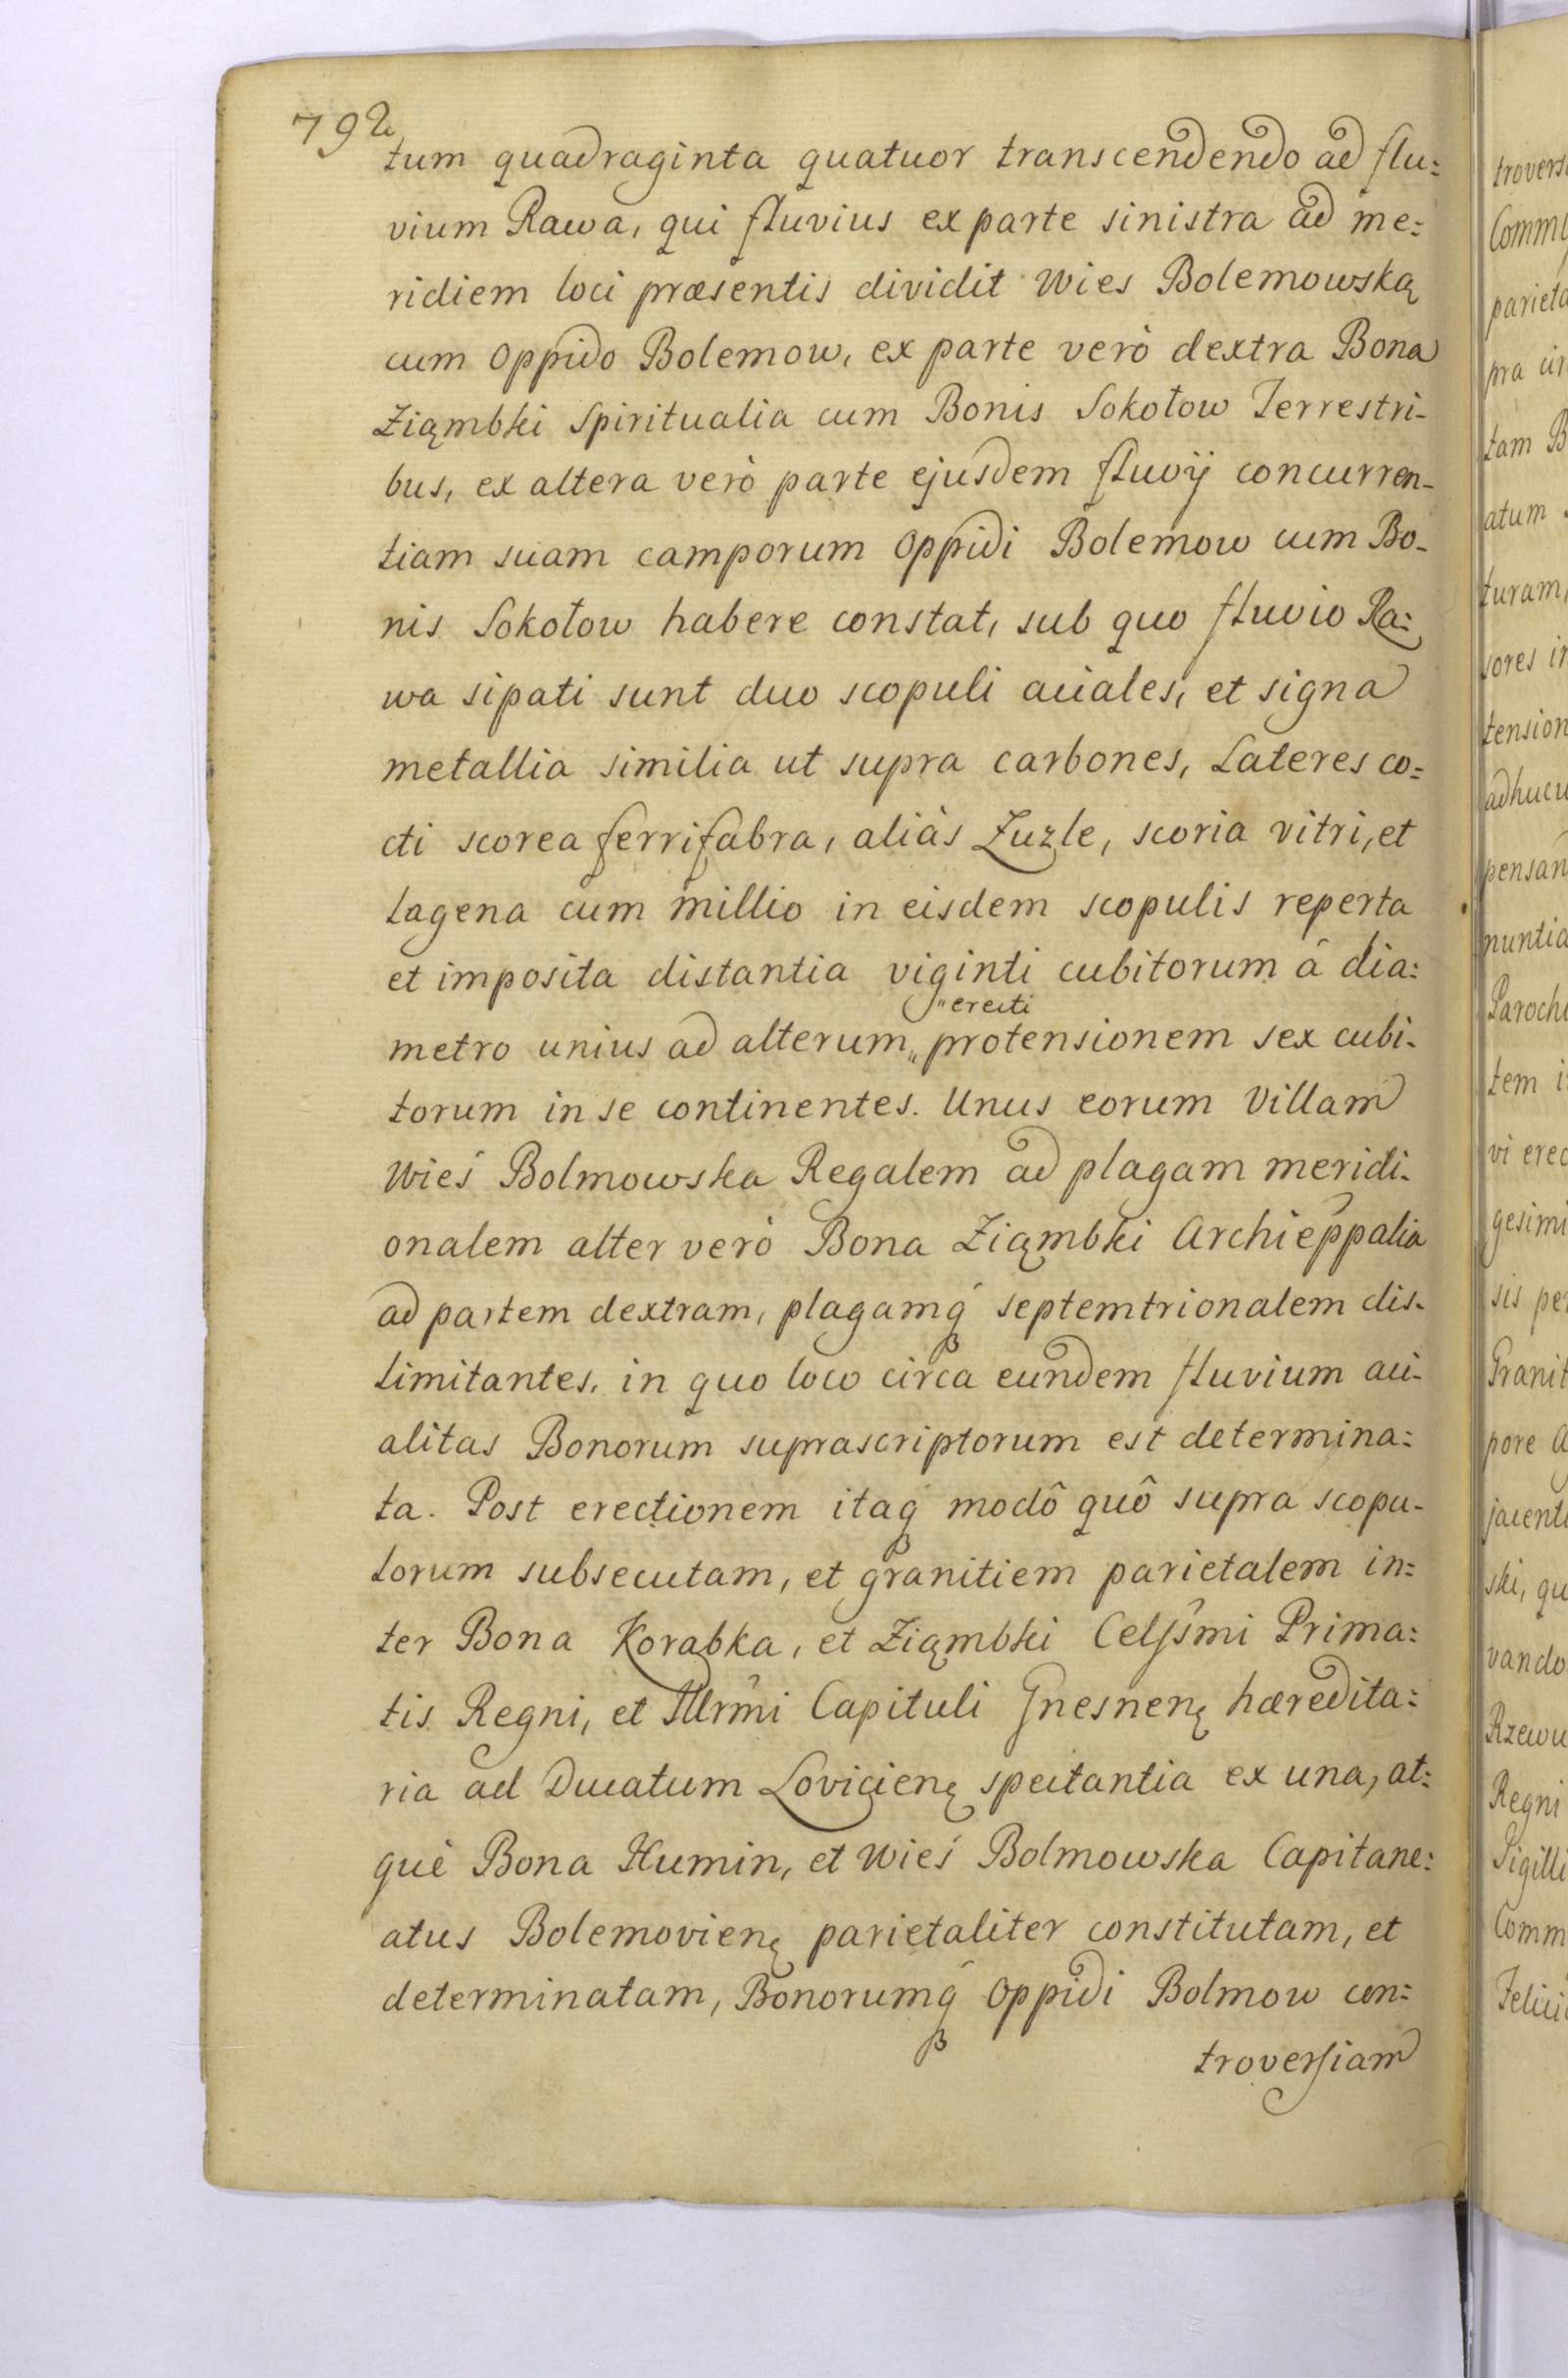 792
tum quadraginta quatuor transcendendo ad flu:
vium Rawa, qui fluvius ex parte sinistra ad me:
ridiem loci præsentis dividit Wies Bolemowską
cum Oppido Bolemow, ex parte verò dextra Bona
Ziąmbki Spiritualia cum Bonis Sokołow Terrestri-
bus, ex altera verò parte ejusdem fluvÿ concurren-
tiam suam camporum Oppidi Bolemow cum Bo-
nis Sokołow habere constat, sub quo fluvio Ra:
wa sipati sunt duo scopuli aciales, et signa
metallia similia ut supra carbones, Lateres co:
cti scorea ferrifabra, aliàs Zuzle, scoria vitri, et
Lagena cum millio in eisdem scopulis reperta
et imposita distantia viginti cubitorum â dia:
"erecti
metro unius ad alterum" protensionem sex cubi-
torum in se continentes. Unus eorum Villam
Wieś Bolmowska Regalem ad plagam meridi-
onalem alter verò Bona Ziąmbki Archieppalia
ad partem dextram, plagamq́ septemtrionalem dis-
limitantes, in quo loco circa eundem fluvium aci-
alitas Bonorum suprascriptorum est determina:
ta. Post erectionem itaq́ modô quô supra scopu-
lorum subsecutam, et granitiem parietalem in:
ter Bona Korabka, et Ziąmbki Celsśmi Prima:
tis Regni, et Illrmi Capituli Gnesnenę hæredita:
ria ad Ducatum Lovicienę spectantia ex una, at:
què Bona Humin, et Wieś Bolmowska Capitane:
atus Bolemovienę parietaliter constitutam, et
determinatam, Bonorumq́ Oppidi Bolmow con:
troversiam